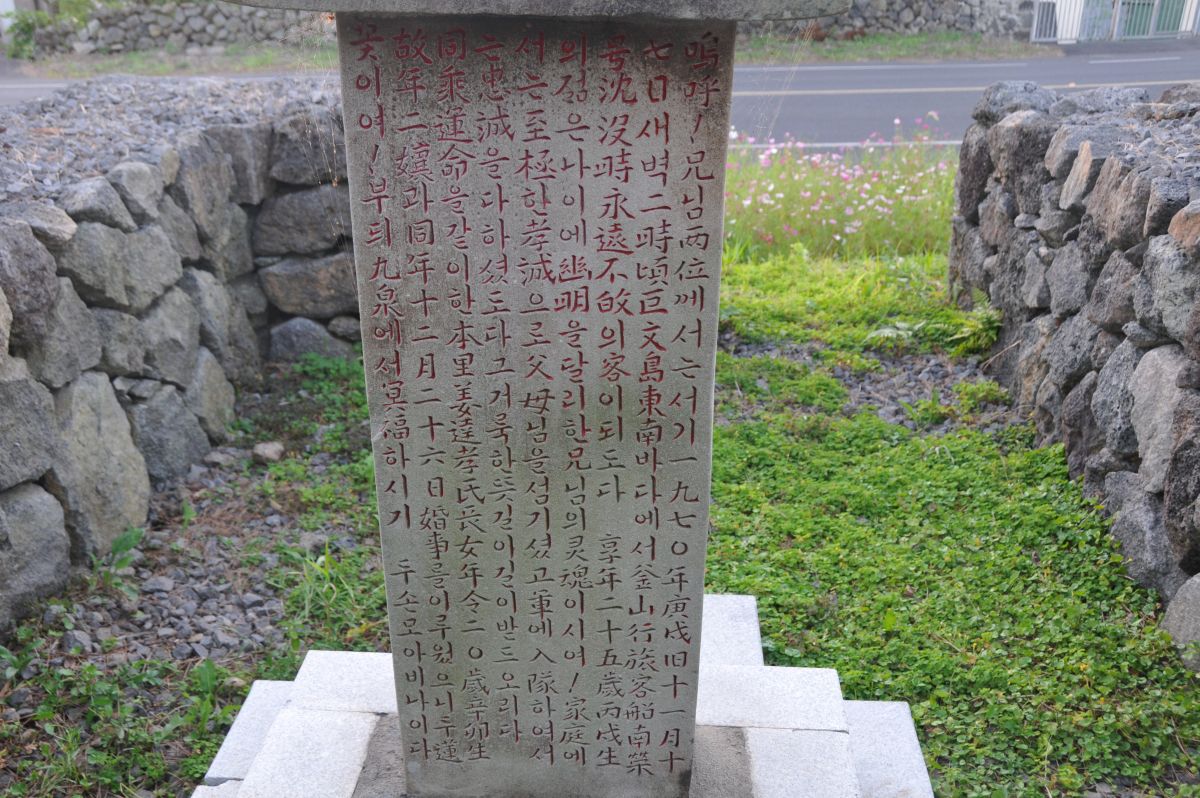 嗚呼! 兄님 两位께서는 서기 一九七〇年 庚戌 旧十一月 十
七日 새벽 二時頃 巨文島 東南바다에서 釜山行 旅客船 南榮
号 沈没時 永遠不故의 客이 되도다 享年 二十五歲 丙戌生
의 젊은 나이에 幽明을 달리한 兄님의 灵魂이시여! 家庭에
서는 至極한 孝誠으로 父母님을 섬기셨고 軍에 入隊하여서
는 忠誠을 다하셨도다 그 거룩한 뜻 길이길이 받드오리다
同乘運命을 같이한 本里 姜達孝氏 長女 年令 二〇歲 辛卯生
故 年二孃과 同年 十二月 二十六日 婚事를 이루웠으니 두 蓮
꽃이여! 부듸 九泉에서 冥福하시기 두손모아 비나이다